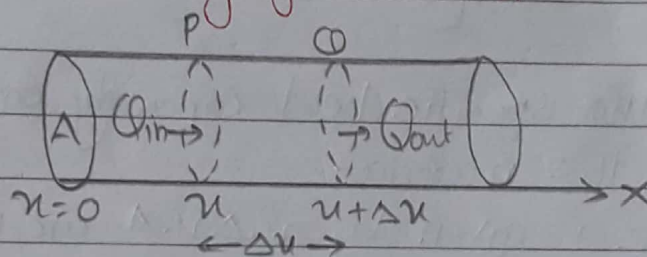 P Q
A Qin→ → Qout
x=0 x x+Δx X
←Δx→